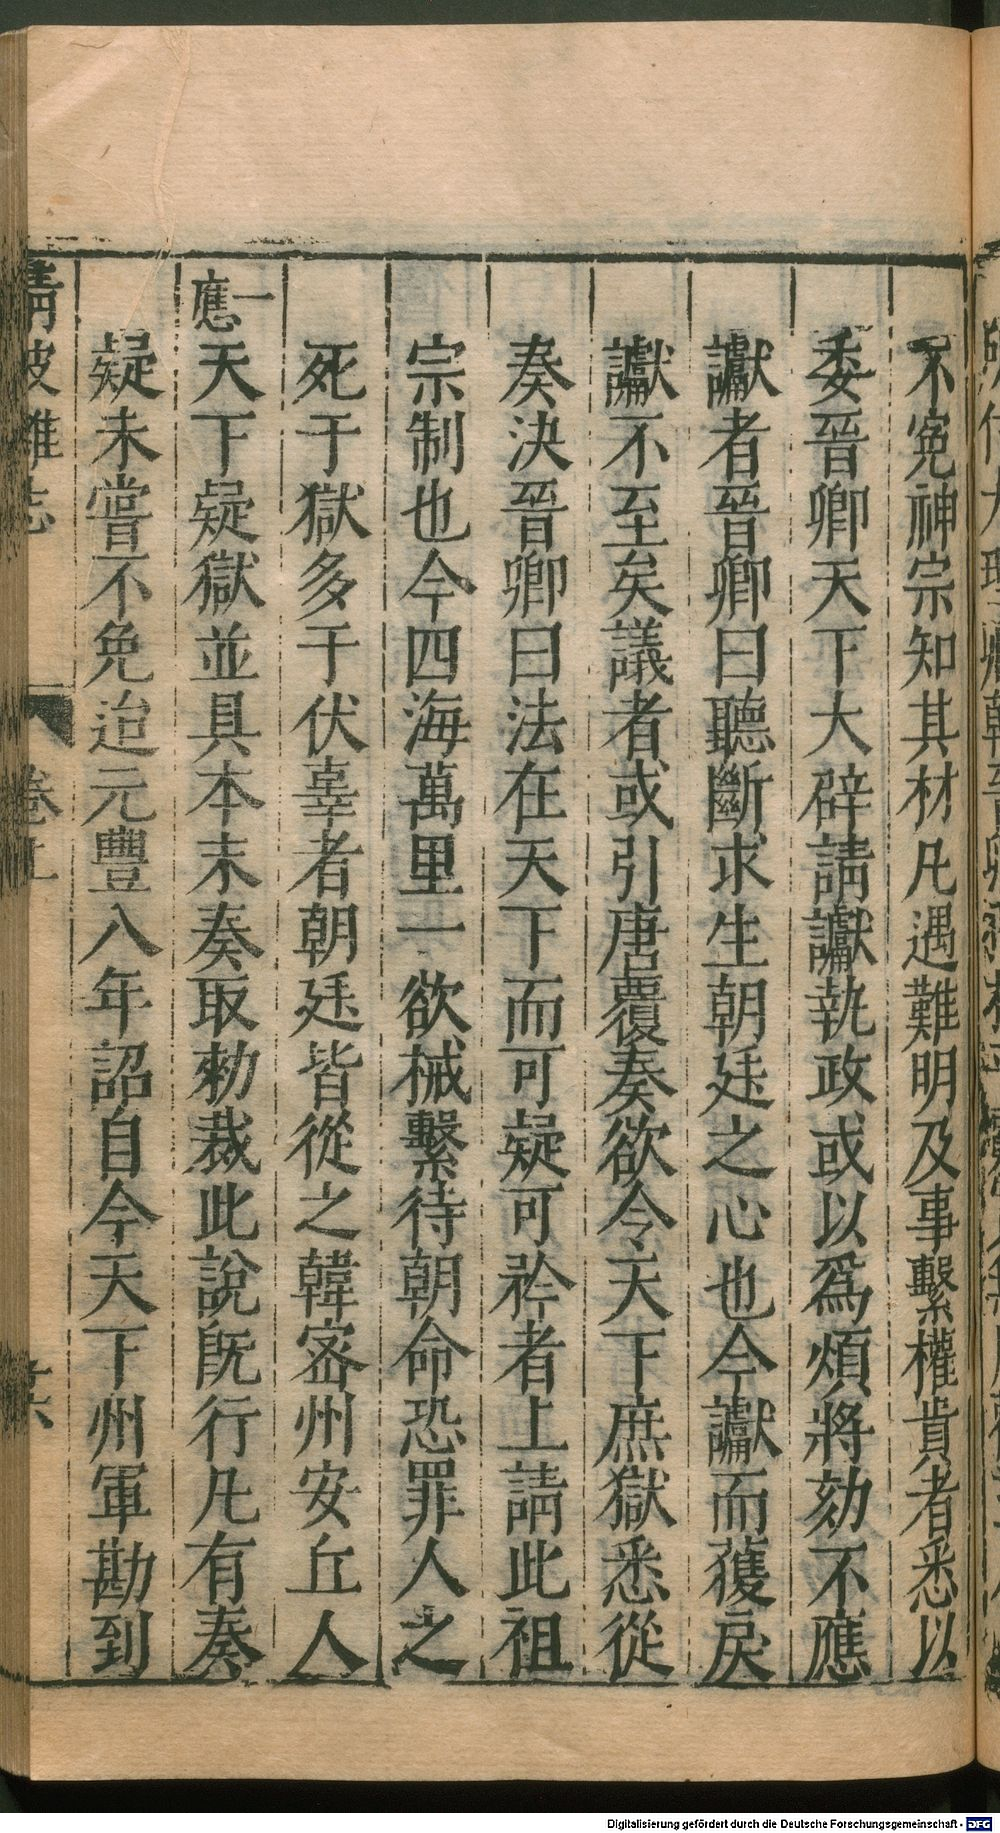 不寃神宗知其材凡遇難明及事繫權貴者悉以
委晉卿天下大辟請讞執政或以爲煩將劾不應
讞者晉卿曰聽斷求生朝廷之心也今讞而獲戾
讞不至矣議者或引唐覆奏欲令天下庶獄悉從
奏決晉卿曰法在天下而可疑可矜者上請此祖
宗制也今四海萬里一欲械繫待朝命恐罪人之
死于獄多于伏辜者朝廷皆從之韓密州安丘人
一應天下疑獄並具本末奏取勑裁此説旣行凡有奏
疑未嘗不免迨元豐八年詔自今天下州軍勘到
清波雜志 卷五 十六
Digitalisierung gefördert durch die Deutsche Forschungsgemeinschaft - DFG